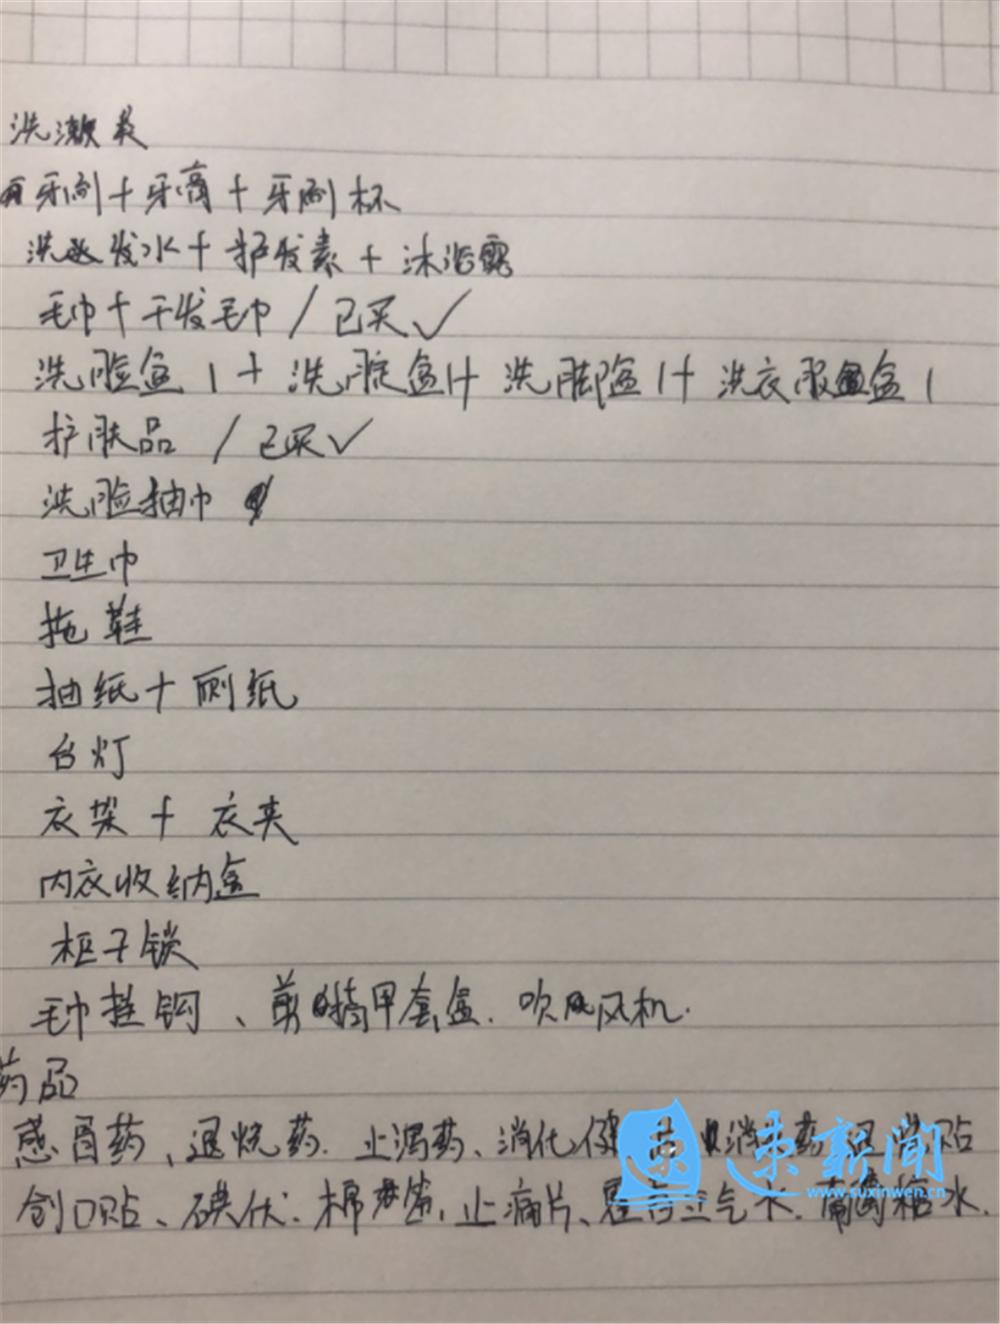 洗漱类
牙刷+牙膏+牙刷杯
洗发水+护发素+沐浴露
毛巾+干发毛巾/已买✓
洗脸盆1+洗脚盆1+洗衣服盆1
护肤品/已买✓
洗脸抽巾
卫生巾
拖鞋
抽纸+厕纸
台灯
衣架+衣夹
内衣收纳盒
柜子锁
毛巾挂钩、剪指甲套盒.吹风机.
药品
感冒药、退烧药.止泻药、消化 消 药 贴
创口贴、碘伏.棉签.止痛片、藿香正气水.葡萄糖水.
速新闻
www.suxinwen.cn